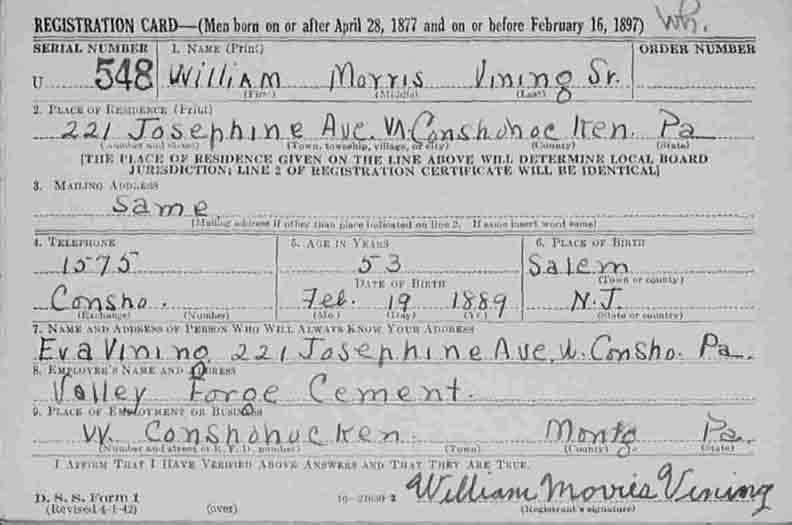 REGISTRATION CARD—(Men born on or after April 28, 1877 and on or before February 16, 1897) Wh.
SERIAL NUMBER 1. NAME (Print) ORDER NUMBER
U 548 William Morris Vining Sr.
(First) (Middle) (Last)
2. PLACE OF RESIDENCE (Print)
221 Josephine Ave. W. Conshohocken. Pa
(Number and street) (Town, township, village, or city) (County) (State)
[THE PLACE OF RESIDENCE GIVEN ON THE LINE ABOVE WILL DETERMINE LOCAL BOARD
JURISDICTION; LINE 2 OF REGISTRATION CERTIFICATE WILL BE IDENTICAL]
3. MAILING ADDRESS
Same
[Mailing address if other than place indicated on line 2. If same insert word same]
4. TELEPHONE 5. AGE IN YEARS 6. PLACE OF BIRTH
1575 53 Salem
DATE OF BIRTH (Town or county)
Consho. Feb. 19 1889 N.J.
(Exchange) (Number) (Mo.) (Day) (Yr.) (State or country)
7. NAME AND ADDRESS OF PERSON WHO WILL ALWAYS KNOW YOUR ADDRESS
Eva Vining 221 Josephine Ave. W. Consho. Pa.
8. EMPLOYER'S NAME AND ADDRESS
Valley Forge Cement.
9. PLACE OF EMPLOYMENT OR BUSINESS
W. Conshohocken. Montg Pa.
(Number and street or R. F. D. number) (Town) (County) (State)
I AFFIRM THAT I HAVE VERIFIED ABOVE ANSWERS AND THAT THEY ARE TRUE.
D. S. S. Form 1 William Morris Vining
(Revised 4-1-42) (over) 16—21630-2 (Registrant's signature)